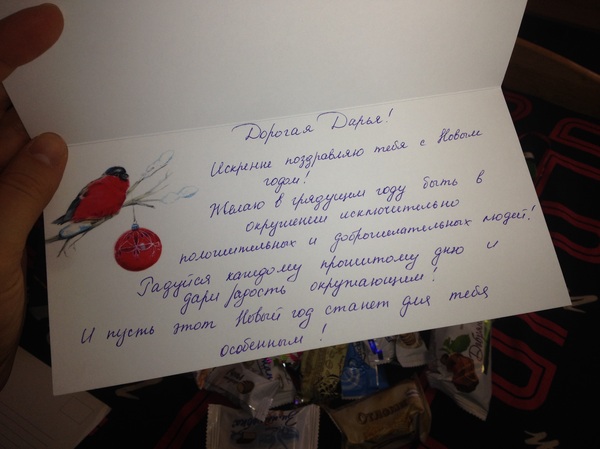 Дорогая Дарья!
Искренне поздравляю тебя с Новым
годом!
Желаю в грядущем году быть в
окружении исключительно
положительных и доброжелательных людей!
Радуйся каждому прожитому дню и
дари радость окружающим!
И пусть этот Новый год станет для тебя
особенным!